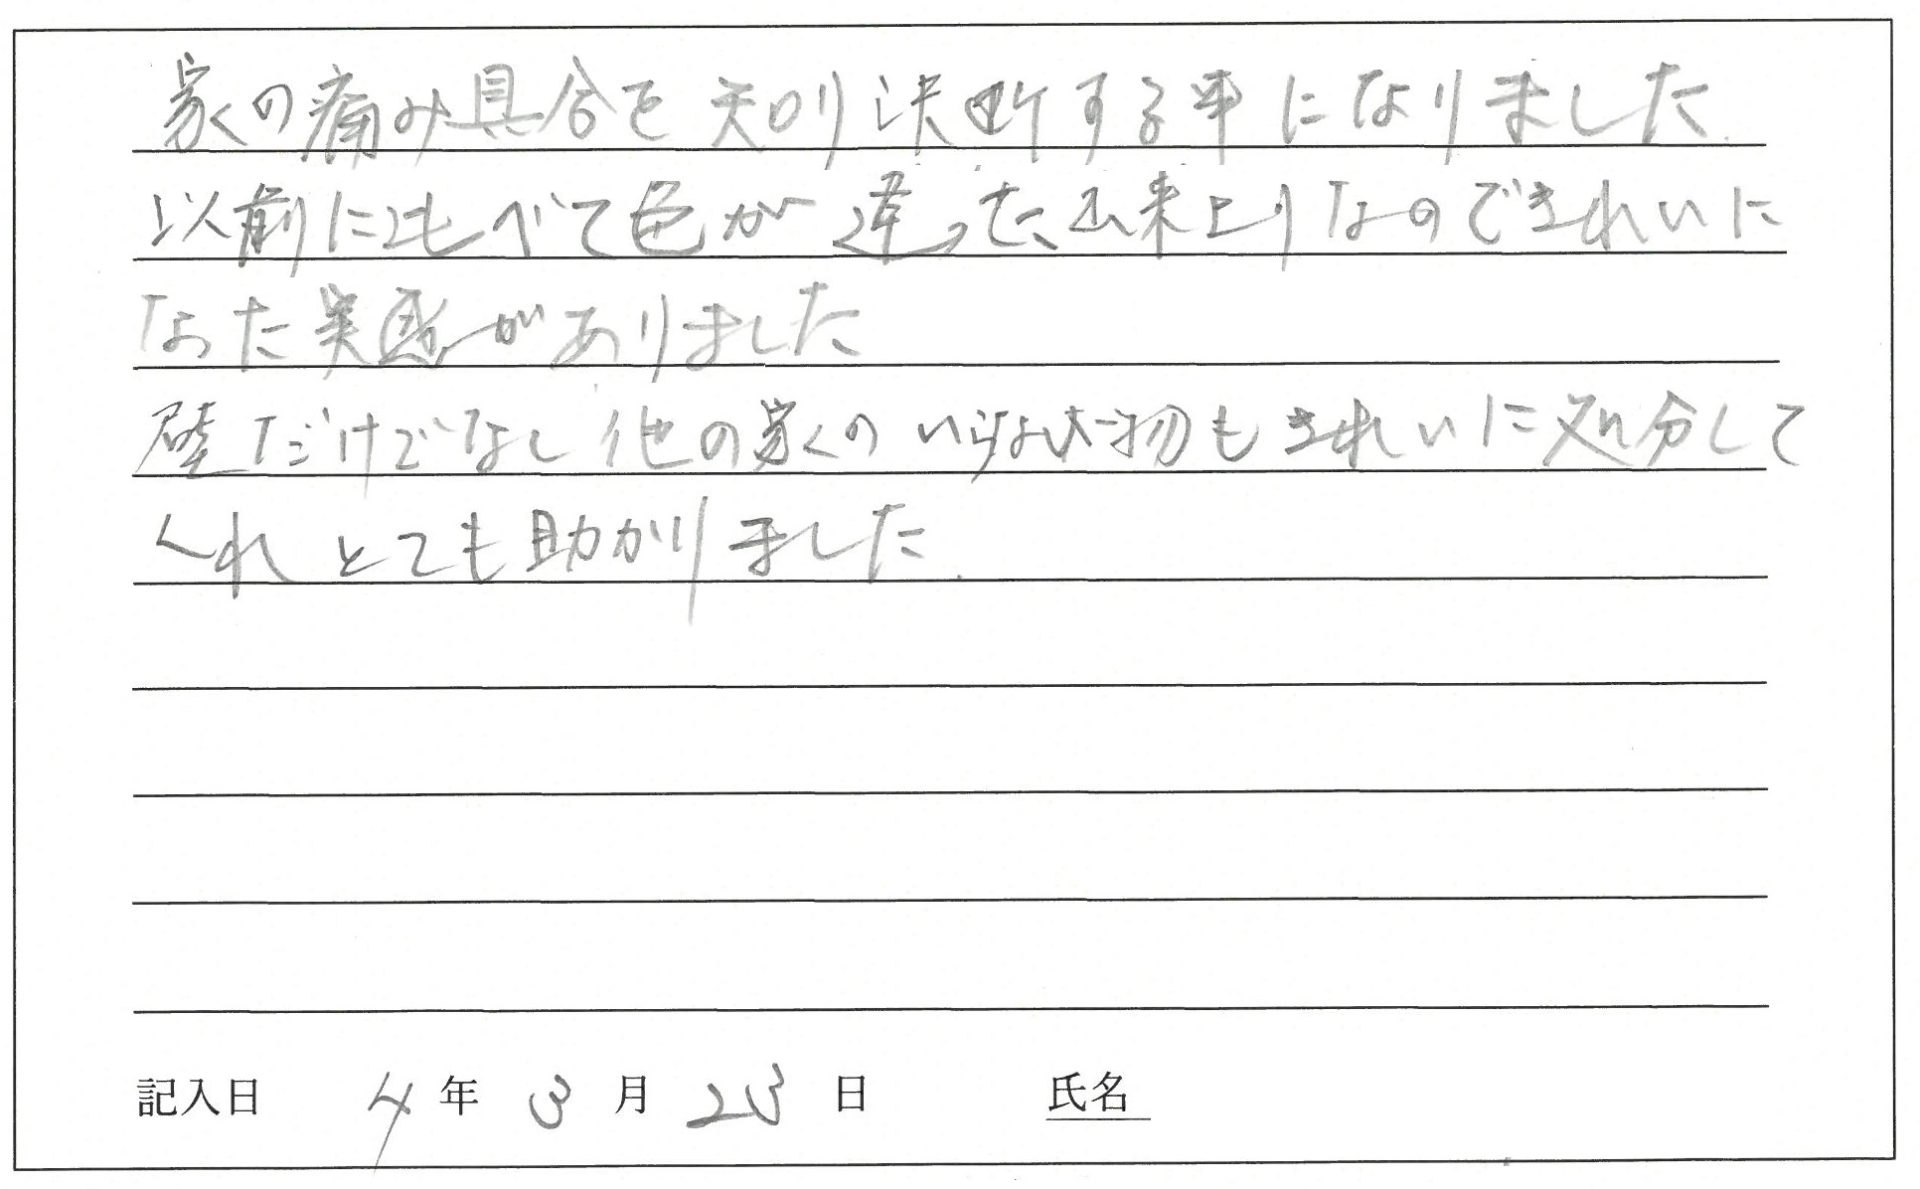 家の痛み具合を知り決断する事になりました
以前に比べて色が違った出来上りなのできれいに
なった実感がありました
壁だけでなし他の家のいらない物もきれいに処分して
くれとても助かりました
記入日 4年 3月 23日 氏名